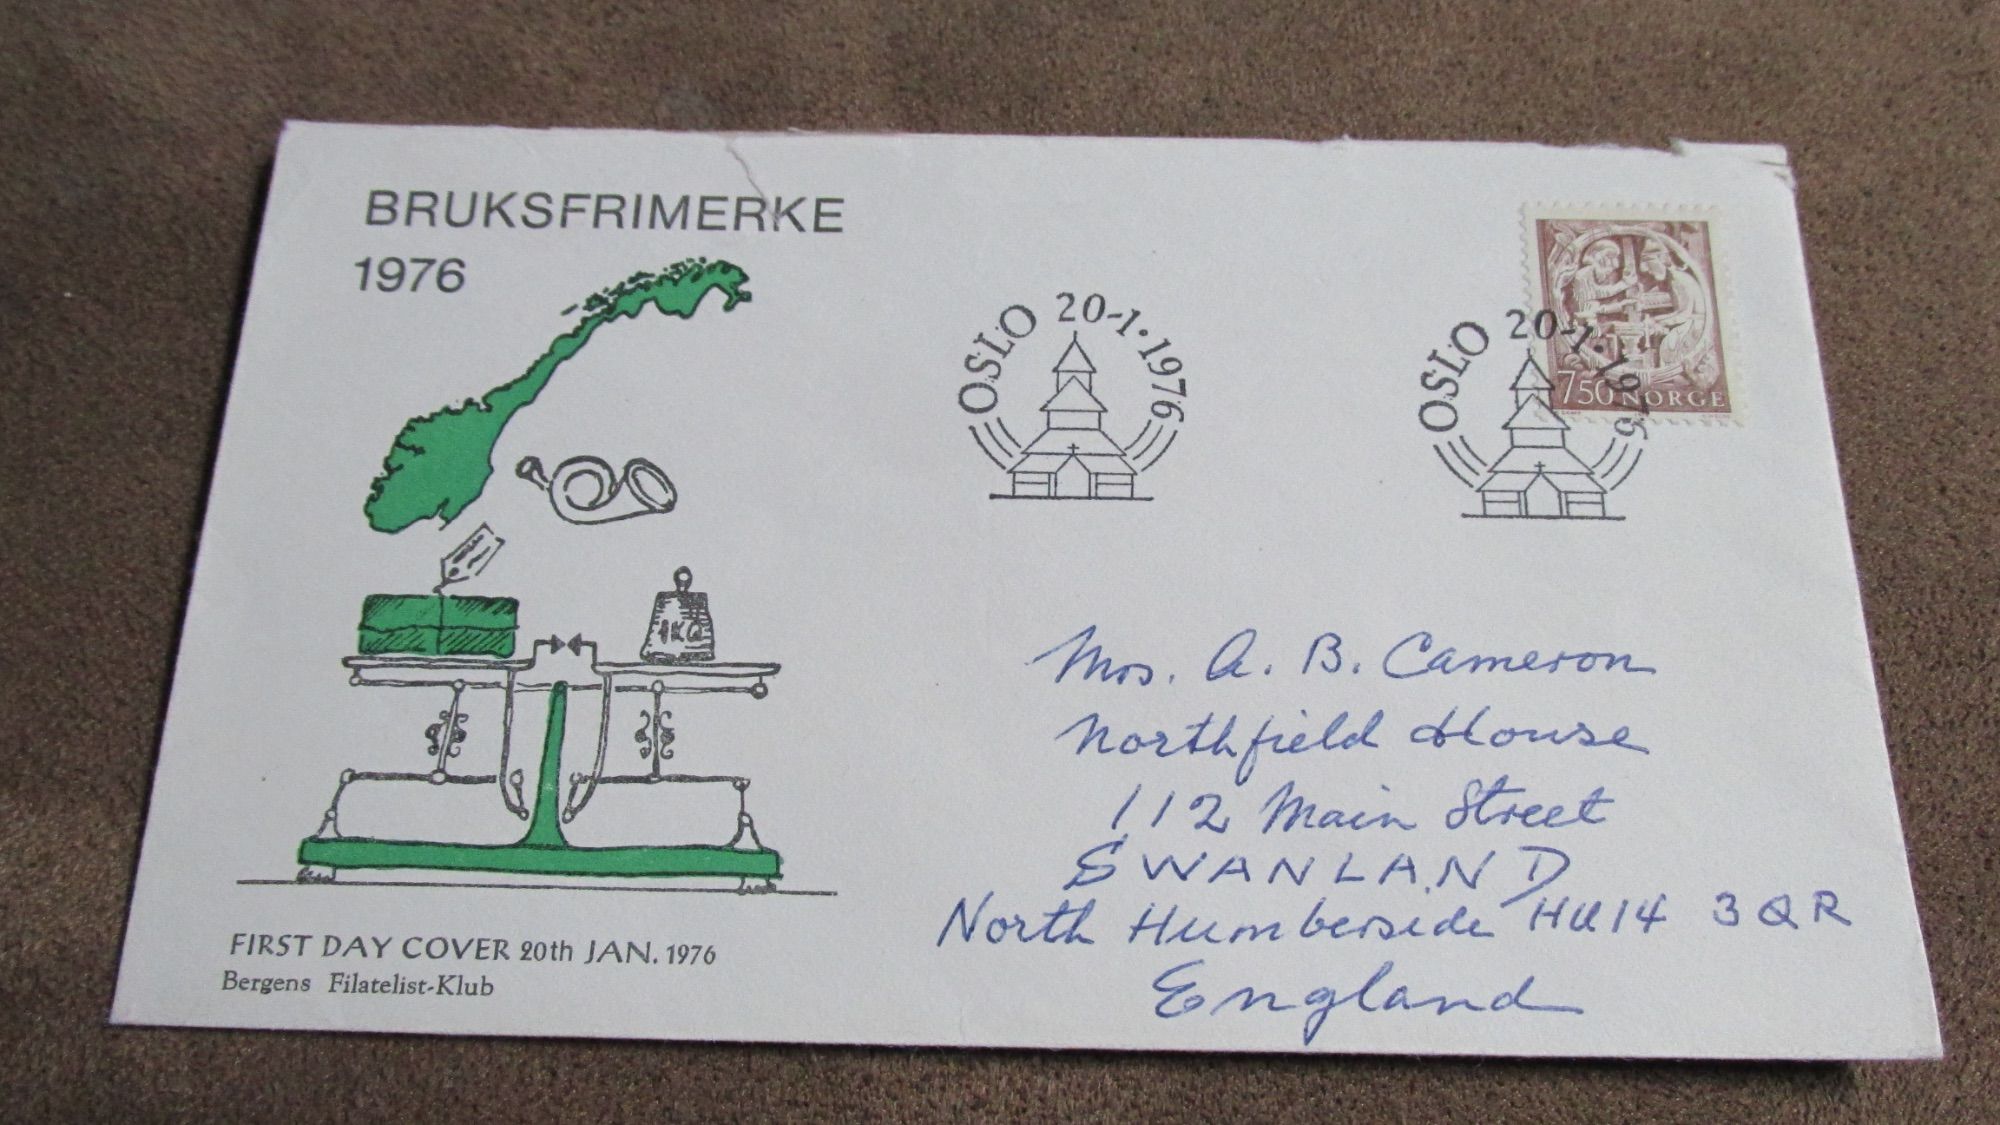 BRUKSFRIMERKE
1976
OSLO 20-1·1976
OSLO 20-1·1976
750 NORGE
1KG
Mrs. A. B. Cameron
Northfield House
112 Main Street
SWANLAND
North Humberside HU14 3QR
England
FIRST DAY COVER 20th JAN. 1976
Bergens Filatelist-Klub